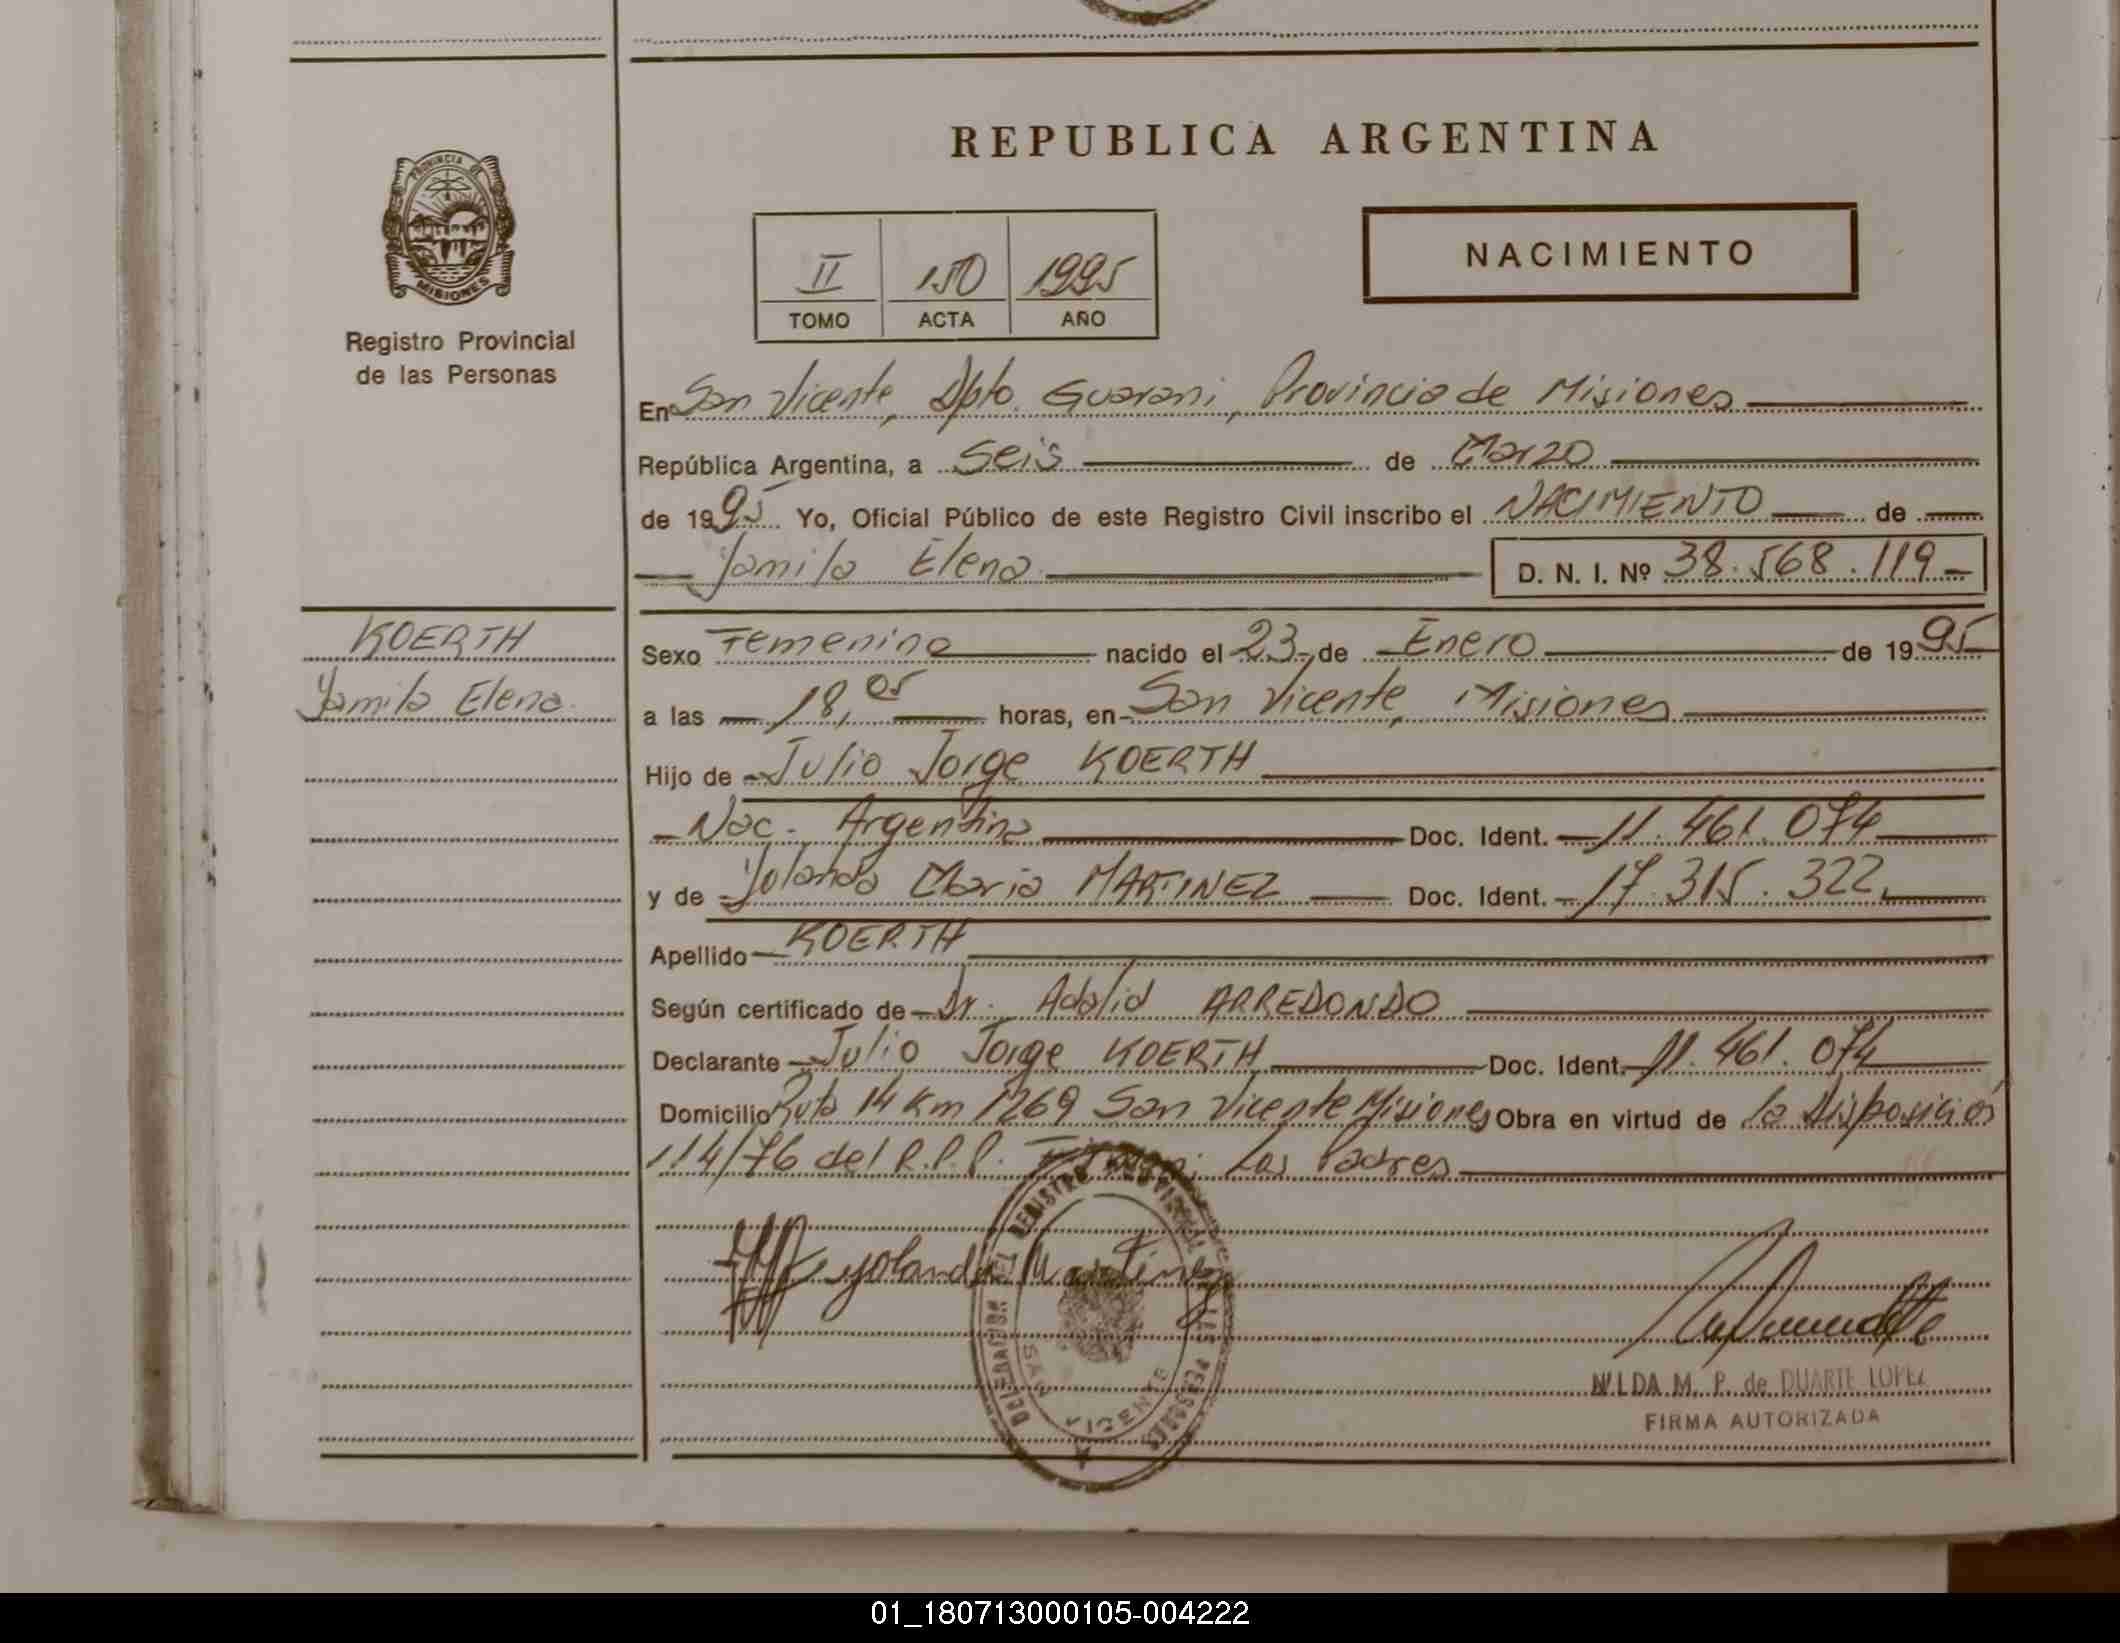 REPUBLICA ARGENTINA
PROVINCIA DE
MISIONES
Registro Provincial
de las Personas
II 150 1995
TOMO ACTA AÑO
NACIMIENTO
En San Vicente, Dpto. Guarani, Provincia de Misiones
República Argentina, a Seis de Marzo
de 1995 Yo, Oficial Público de este Registro Civil inscribo el NACIMIENTO de
Yamila Elena D. N. I. Nº 38.568.119
KOERTH
Yamila Elena
Sexo Femenino nacido el 23 de Enero de 1995
a las 18,05 horas, en San Vicente, Misiones
Hijo de Julio Jorge KOERTH
Nac. Argentina Doc. Ident. 11.461.074
y de Yolanda Maria MARTINEZ Doc. Ident. 17.315.322
Apellido KOERTH
Según certificado de Dr. Adalid ARREDONDO
Declarante Julio Jorge KOERTH Doc. Ident. 11.461.074
Domicilio Ruta 14 Km 1269 San Vicente Misiones Obra en virtud de la Disposición
114/76 del R.P.P. Los Padres
Yolanda Martinez
DELEGACION DEL REGISTRO PROVINCIAL DE LAS PERSONAS
SAN VICENTE
NILDA M. P. de DUARTE LOPEZ
FIRMA AUTORIZADA
01_180713000105-004222